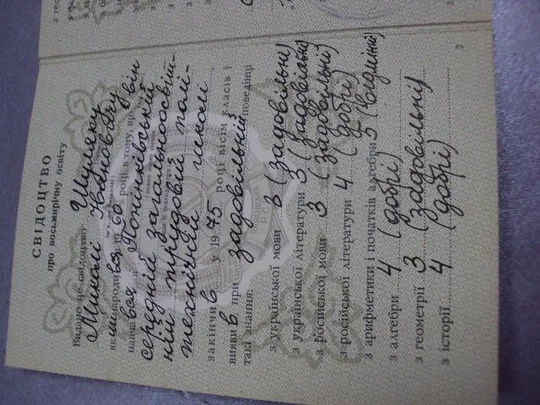 СВІДОЦТВО
про восьмирічну освіту
Видано це свідоцтво Шуляку
Миколі Івановичу
в тому, що він
середній загальноосвіт-
ній трудовій полі-
технічній школі
закінчив у 1975 році вісім класів і
виявив при задовільній поведінці
такі знання:
з української мови 3 (задовільно)
з української літератури 3 (задовільно)
з російської мови 3 (задовільно)
з російської літератури 4 (добрі)
з арифметики і початків алгебри 5 (відмінні)
з алгебри 4 (добрі)
з геометрії 3 (задовільну)
з історії 4 (добрі)